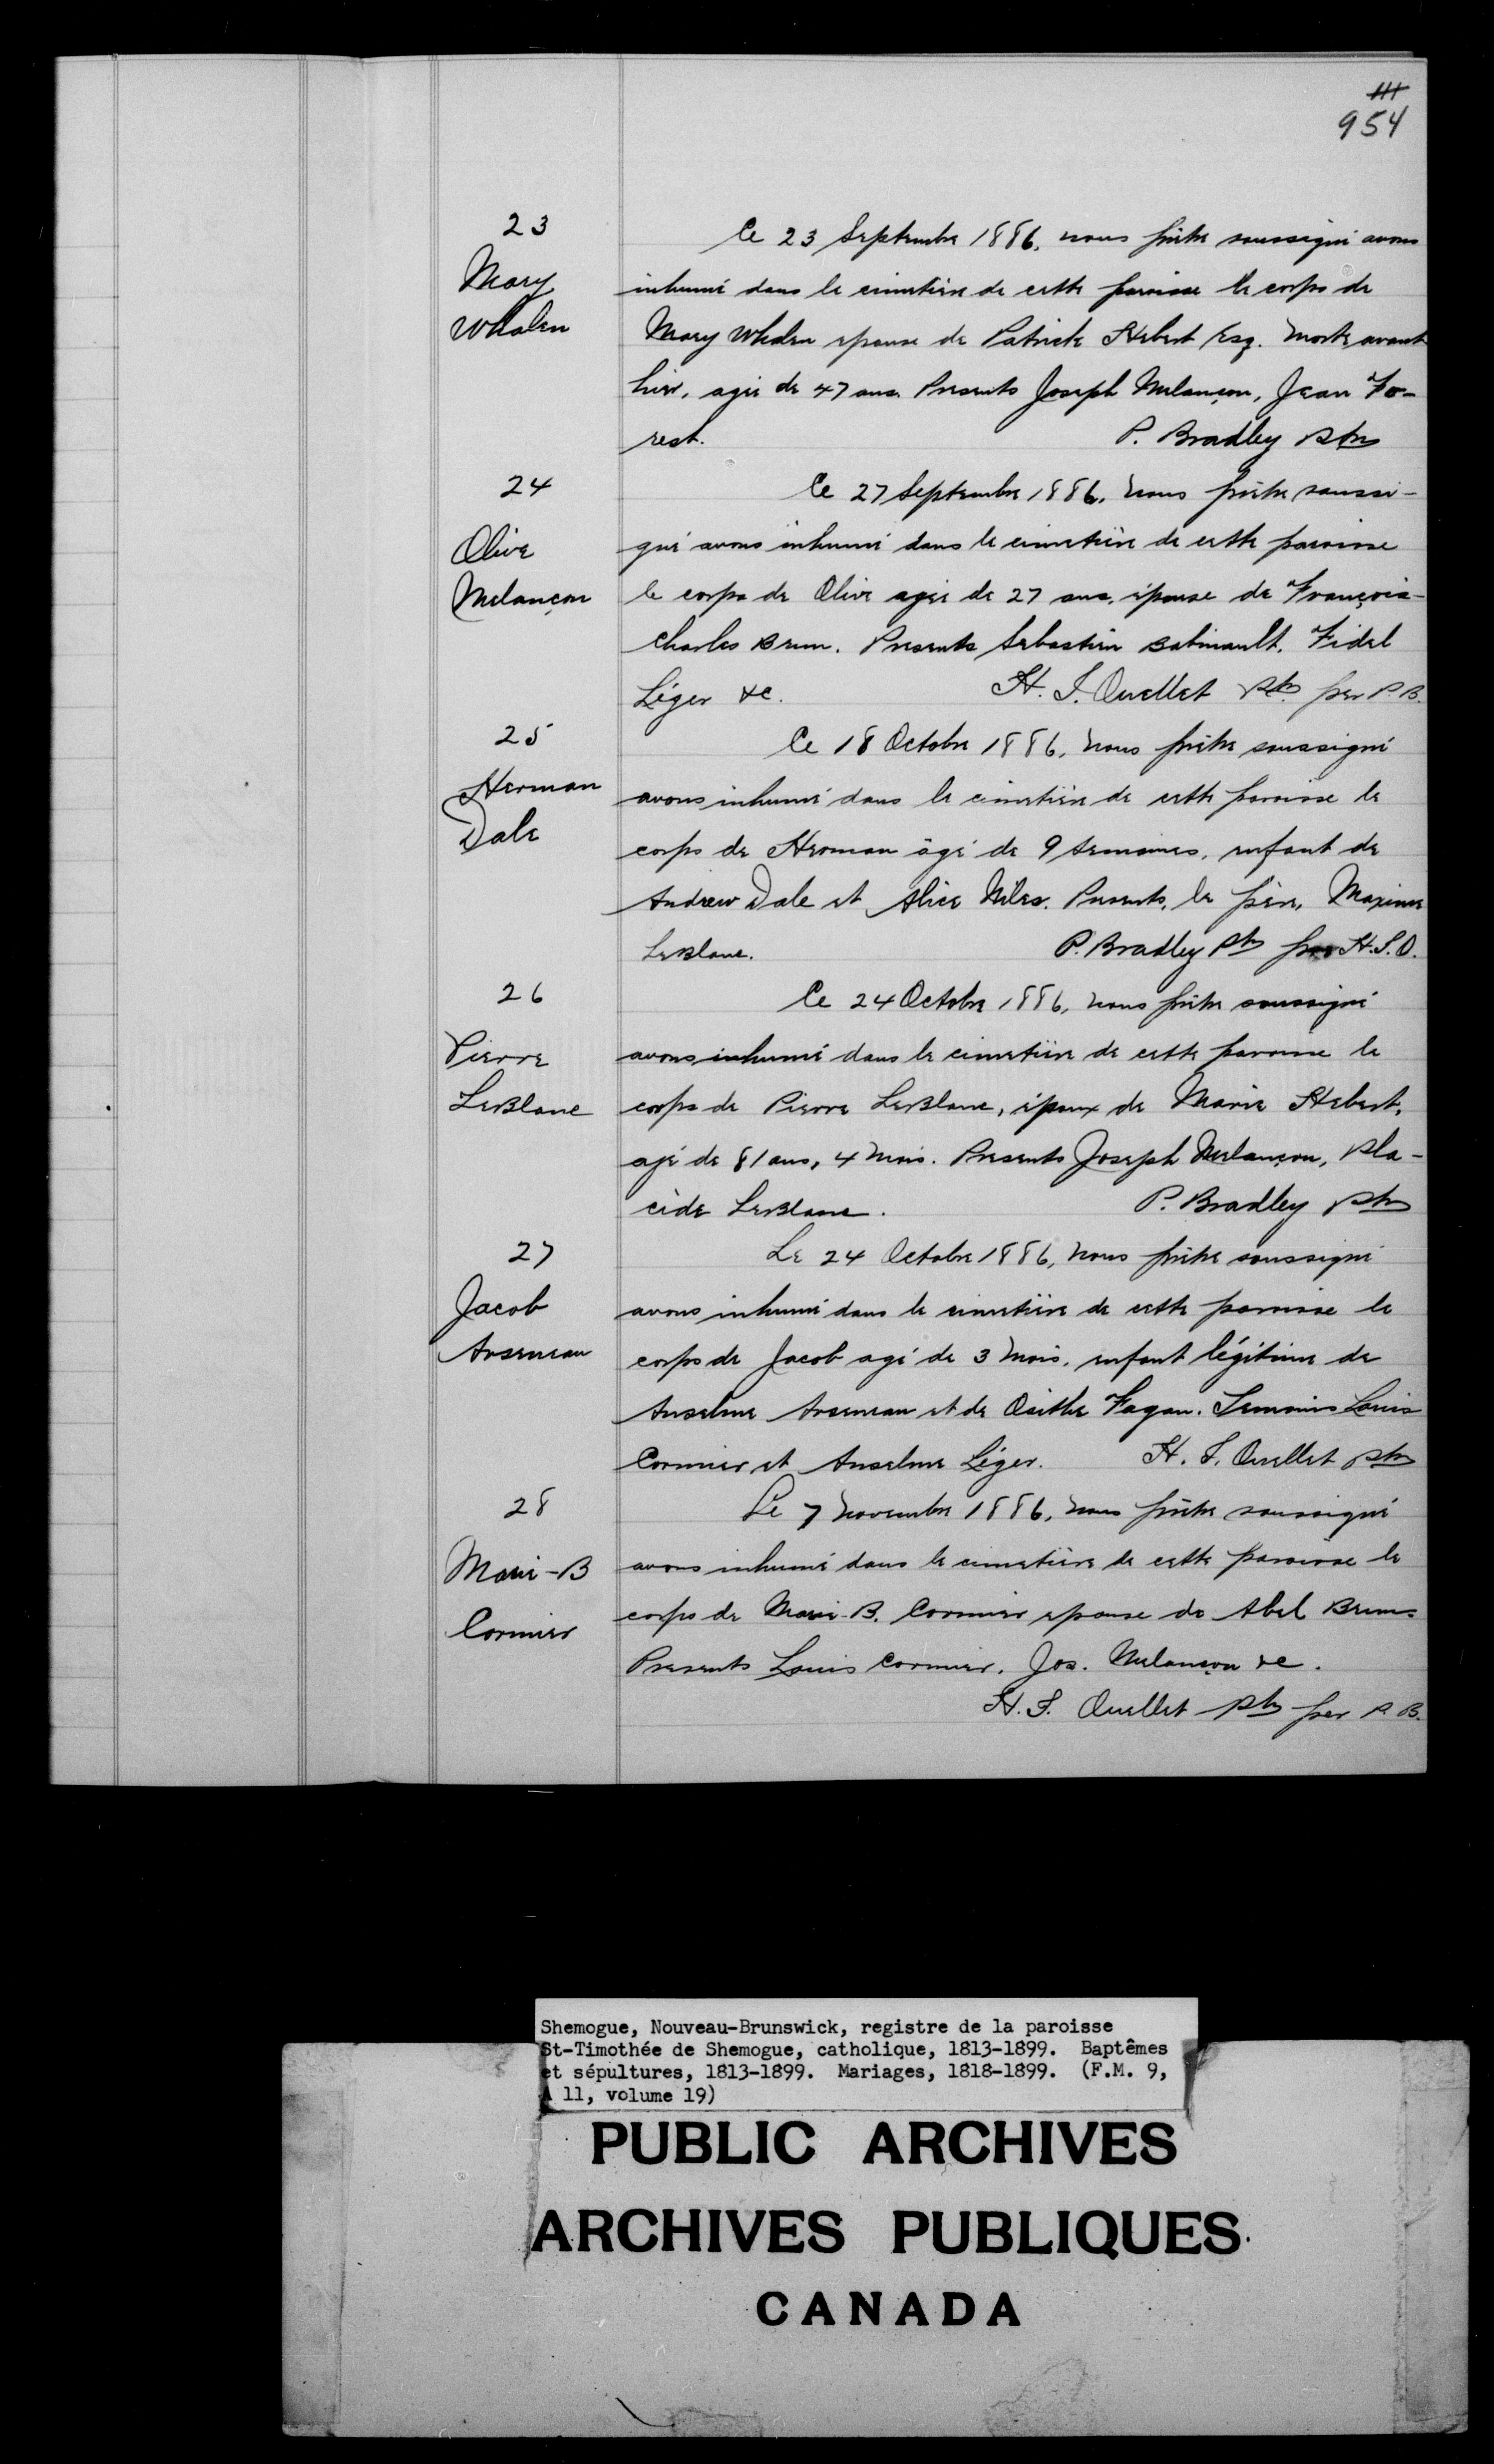 111
954
23
Mary
Whalen
Ce 23 Septembre 1886, nous prêtre soussigné avons
inhumé dans le cimetière de cette paroisse le corps de
Mary Whalen epouse de Patrick Hebert Esq. morte avant
hier, agée de 47 ans. Presents Joseph Melançon, Jean Fo-
rest. P. Bradley Ptre
24
Olive
Melançon
Ce 27 Septembre 1886, nous prêtre soussi-
gné avons inhumé dans le cimetière de cette paroisse
le corps de Olive agée de 27 ans, épouse de François-
Charles Brun. Presents Sebastien Babinault, Fidel
Léger &c. H. I. Ouellet Ptre per P. B.
25
Herman
Dale
Ce 18 Octobre 1886, nous prêtre soussigné
avons inhumé dans le cimetière de cette paroisse le
corps de Herman âgé de 9 semaines, enfant de
Andrew Dale et Alice Niles. Presents, le père, Maxime
LeBlanc. P. Bradley Ptre per H. I. O.
26
Pierre
LeBlanc
Ce 24 Octobre 1886, nous prêtre soussigné
avons inhumé dans le cimetière de cette paroisse le
corps de Pierre LeBlanc, époux de Marie Hebert,
agé de 81 ans, 4 mois. Presents Joseph Melançon, Pla-
cide LeBlanc. P. Bradley Ptre
27
Jacob
Arseneau
Le 24 Octobre 1886, nous prêtre soussigné
avons inhumé dans le cimetière de cette paroisse le
corps de Jacob agé de 3 mois, enfant légitime de
Anselme Arseneau et de Osithe Fagan. Temoins Louis
Cormier et Anselme Léger. H. I. Ouellet Ptre
28
Marie-B
Cormier
Le 7 novembre 1886, nous prêtre soussigné
avons inhumé dans le cimetière de cette paroisse le
corps de Marie-B. Cormier epouse de Abel Brun.
Presents Louis Cormier, Jos. Melançon &c.
H. I. Ouellet Ptre per P. B.
Shemogue, Nouveau-Brunswick, registre de la paroisse
St-Timothée de Shemogue, catholique, 1813-1899. Baptêmes
et sépultures, 1813-1899. Mariages, 1818-1899. (F.M. 9,
A 11, volume 19)
PUBLIC ARCHIVES
ARCHIVES PUBLIQUES
CANADA